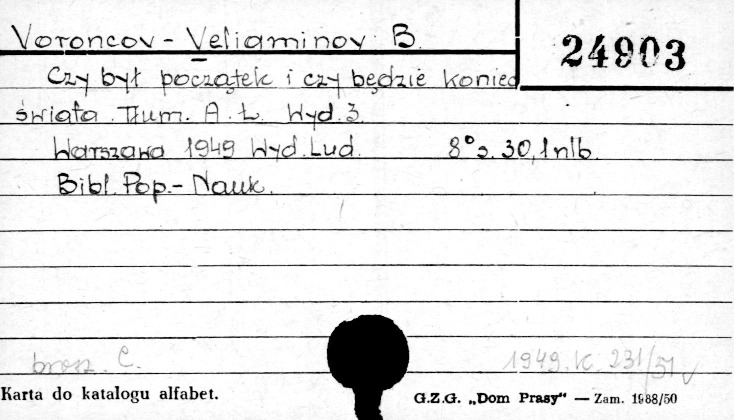 Voroncov - Veliaminov B.
24903
Czy był początek i czy będzie koniec
świata. Tłum. A. Ł. Wyd. 3.
Warszawa 1949 Wyd. Lud. 8° s. 30, 1 nlb.
Bibl. Pop.- Nauk.
brosz. C. 1949. K. 231/51
Karta do katalogu alfabet. G.Z.G. „Dom Prasy" — Zam. 1988/50